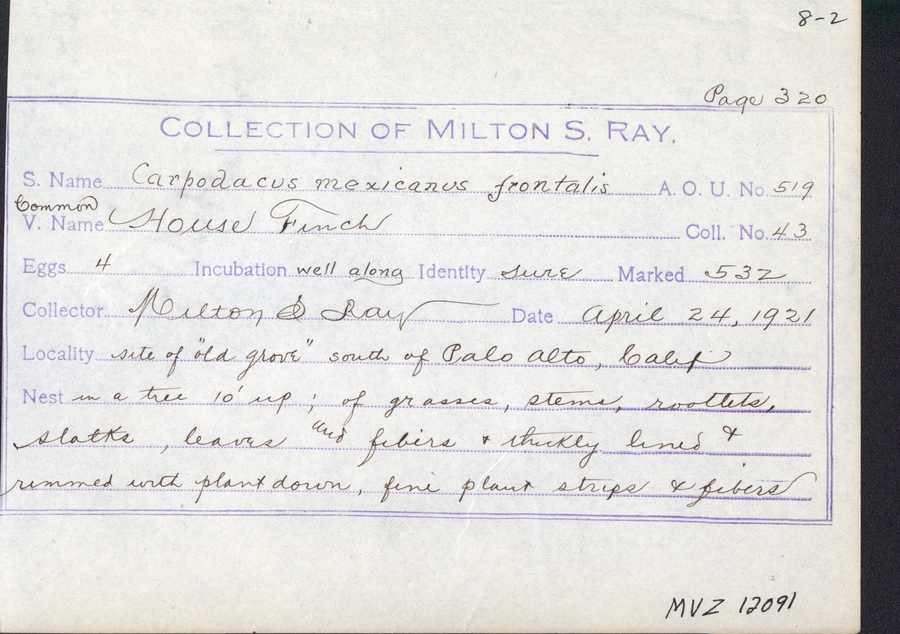 8-2
Page 320
COLLECTION OF MILTON S. RAY.
S. Name Carpodacus mexicanus frontalis A. O. U. No. 519
Common
V. Name House Finch Coll. No. 43
Eggs 4 Incubation well along Identity sure Marked 532
Collector Milton S Ray Date April 24, 1921
Locality site of "old grove" south of Palo Alto, Calif
Nest in a tree 10' up ; of grasses, stems, rootlets,
slatks , leaves and fibers + thickly lined &
rimmed with plant down, fine plant strips & fibers
MVZ 12091